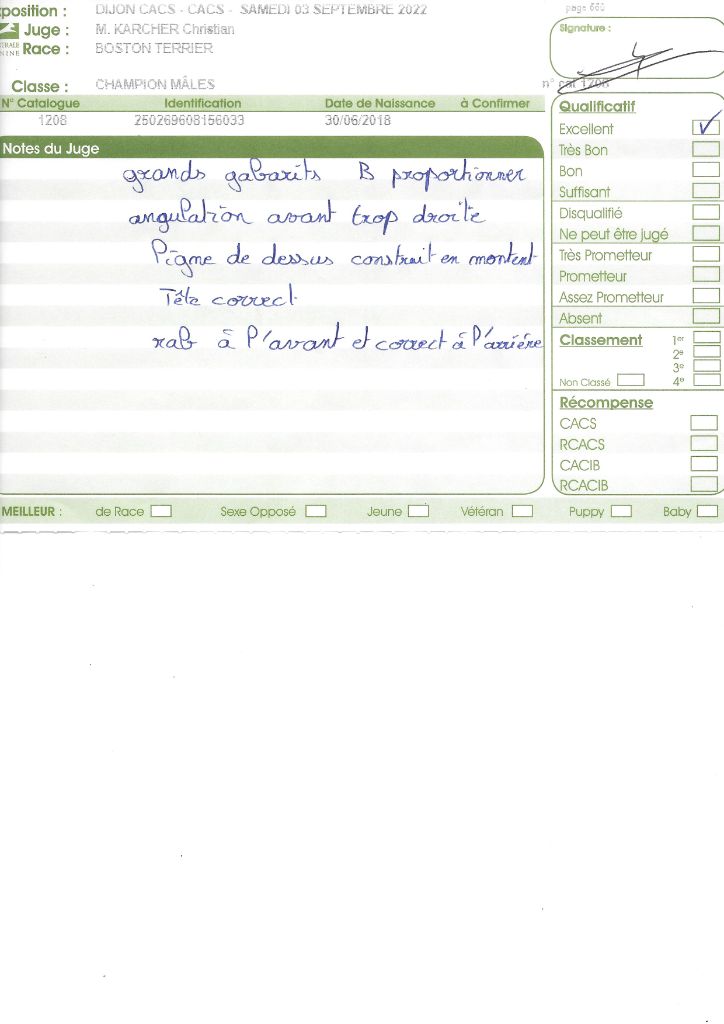 position : DIJON CACS - CACS - SAMEDI 03 SEPTEMBRE 2022
Juge : M. KARCHER Christian
Race : BOSTON TERRIER
Classe : CHAMPION MÂLES
page
Signature :
n° cat 1208
N° Catalogue Identification Date de Naissance à Confirmer
1208 250269608156033 30/06/2018
Notes du Juge
grands gabarits B proportionner
angulation avant trop droite
ligne de dessus construit en montent
Tête correct
rab à l'avant et correct à l'arriére
Qualificatif
Excellent
Très Bon
Bon
Suffisant
Disqualifié
Ne peut être jugé
Très Prometteur
Prometteur
Assez Prometteur
Absent
Classement 1er
2e
3e
Non Classé 4e
Récompense
CACS
RCACS
CACIB
RCACIB
MEILLEUR : de Race Sexe Opposé Jeune Vétéran Puppy Baby